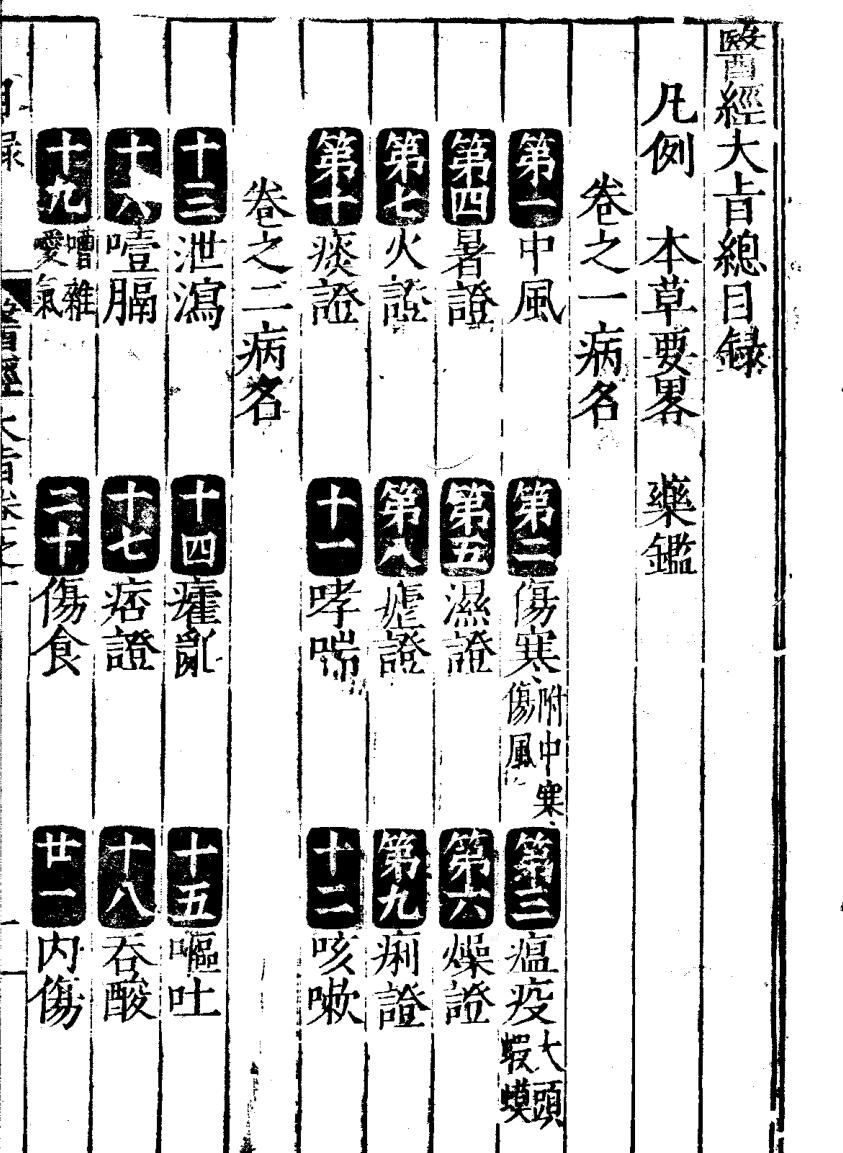 醫經大旨總目録
凡例　本草要畧　藥鑑
卷之一病名
第一中風　第二傷寒附中寒傷風　第三瘟疫大頭蝦蟆
第四暑證　第五濕證　第六燥證
第七火證　第八瘧證　第九痢證
第十痰證　十一哮喘　十二咳嗽
卷之二病名
十三泄瀉　十四癨亂　十五嘔吐
十六噎膈　十七痞證　十八吞酸
十九嘈雜噯氣　二十傷食　廿一内傷
醫經大旨卷之一